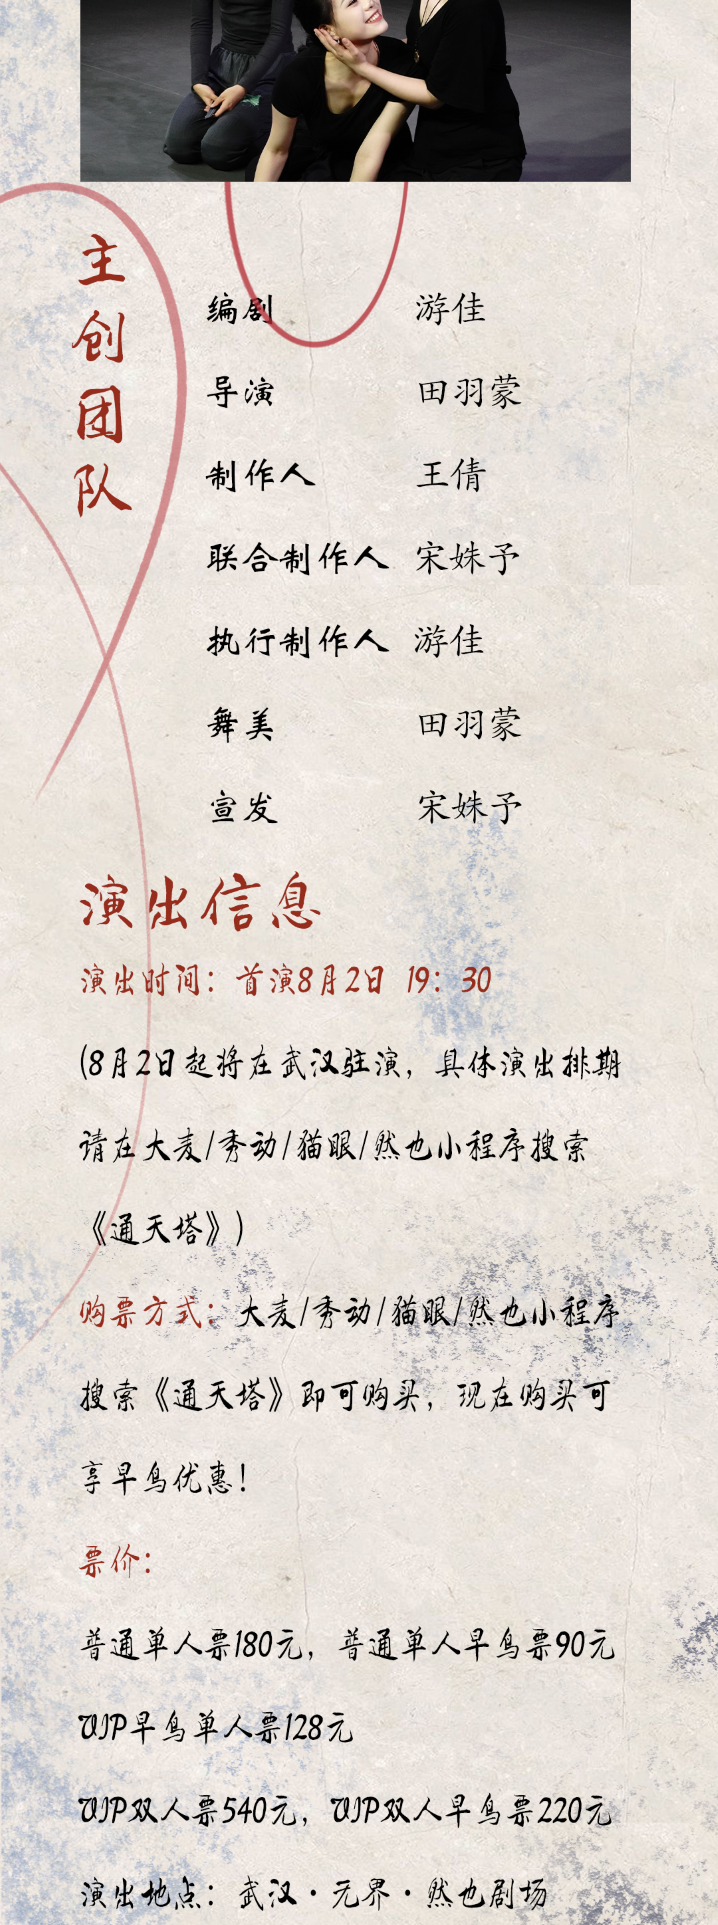 主创团队
编剧 游佳
导演 田羽蒙
制作人 王倩
联合制作人 宋姝予
执行制作人 游佳
舞美 田羽蒙
宣发 宋姝予
演出信息
演出时间：首演8月2日 19：30
(8月2日起将在武汉驻演，具体演出排期
请在大麦/秀动/猫眼/然也小程序搜索
《通天塔》)
购票方式：大麦/秀动/猫眼/然也小程序
搜索《通天塔》即可购买，现在购买可
享早鸟优惠！
票价：
普通单人票180元，普通单人早鸟票90元
VIP早鸟单人票128元
VIP双人票540元，VIP双人早鸟票220元
演出地点：武汉·无界·然也剧场